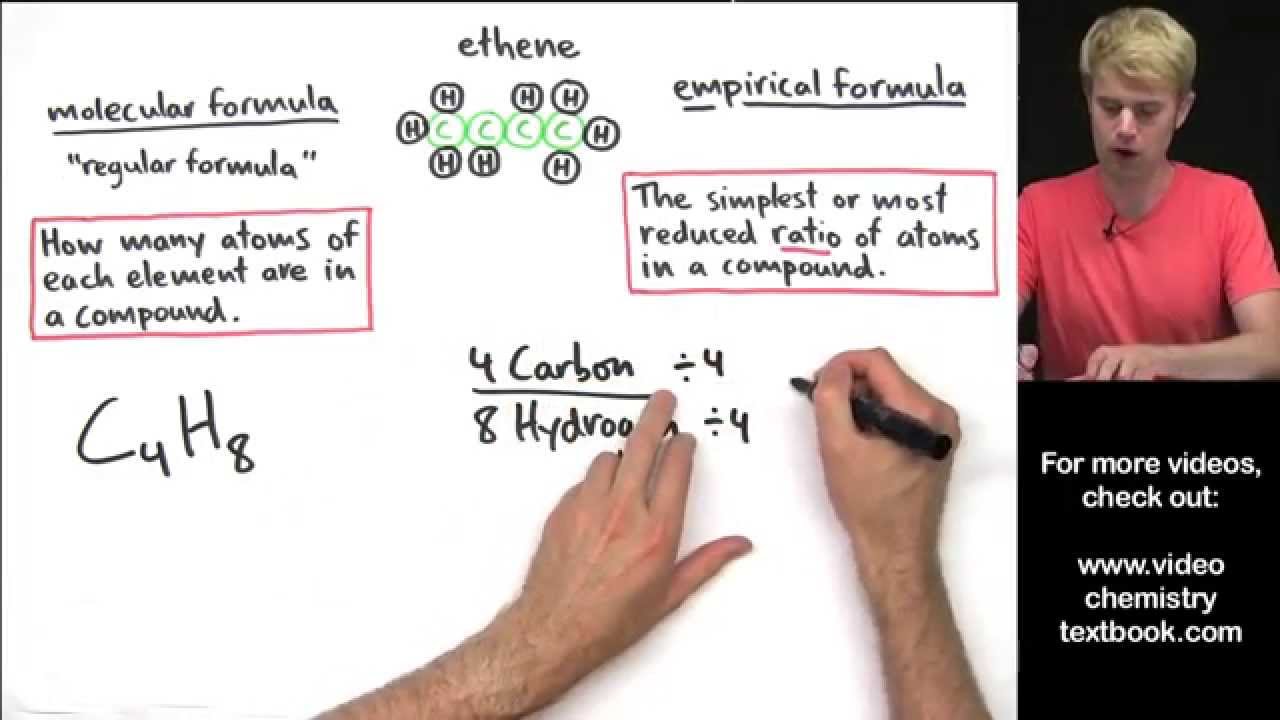 ethene
molecular formula
"regular formula"
How many atoms of
each element are in
a compound.
H H H
H C C C C H
H H H
empirical formula
The simplest or most
reduced ratio of atoms
in a compound.
C4H8
4 Carbon ÷4
8 Hydrogen ÷4
For more videos,
check out:
www.video
chemistry
textbook.com